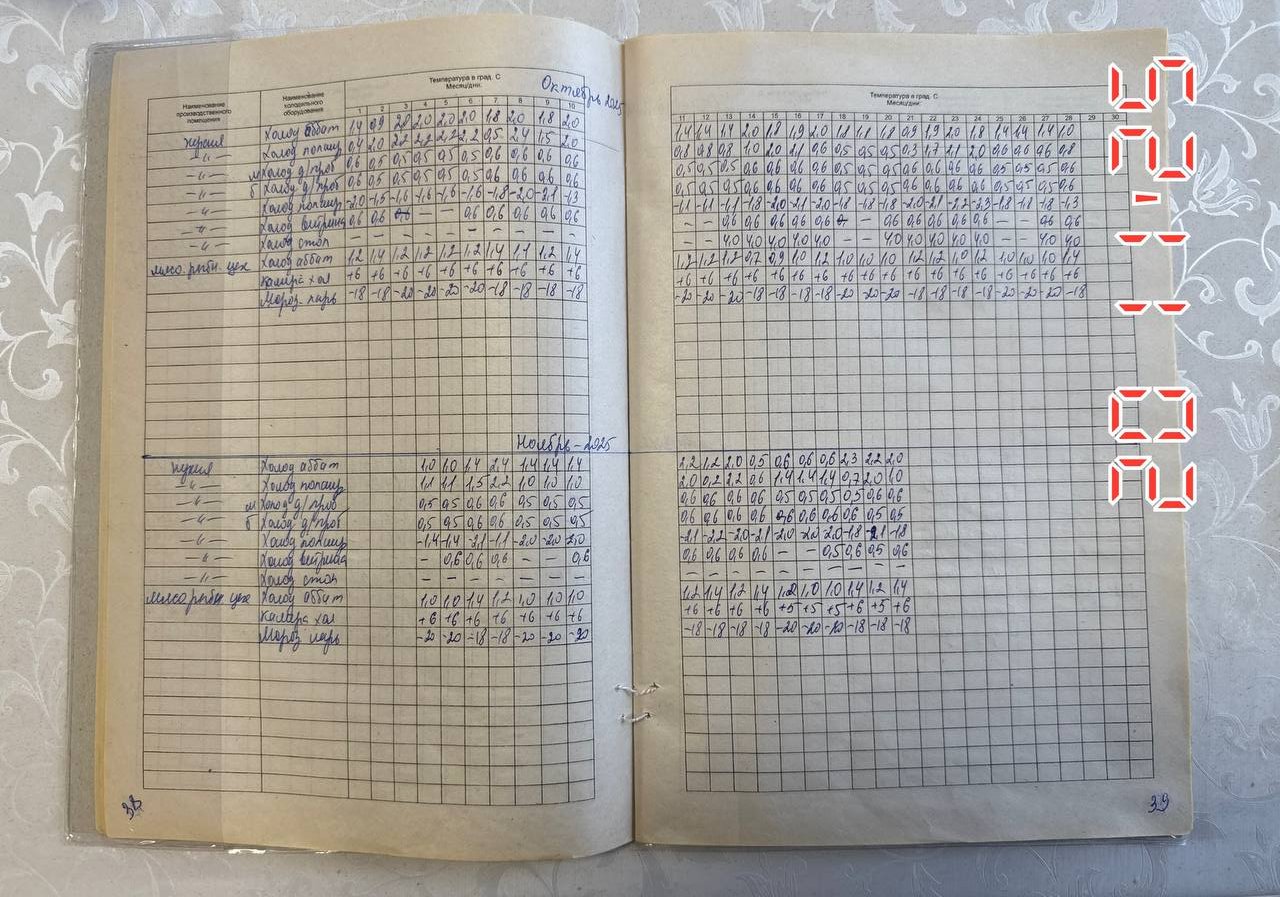 Температура в град. С
Месяц/дни:
Октябрь 2025
Наименование производственного помещения
Наименование холодильного оборудования
1 2 3 4 5 6 7 8 9 10
кухня Холод аббат 1,4 0,9 2,0 2,0 2,0 2,0 1,8 2,0 1,8 2,0
-"- Холод полаир 0,4 2,0 2,2 2,2 2,2 2,2 0,5 2,4 1,5 2,0
-"- м Холод д/проб 0,6 0,5 0,5 0,5 0,5 0,5 0,6 0,6 0,6 0,6
-"- б Холод д/проб 0,6 0,5 0,5 0,5 0,5 0,5 0,6 0,6 0,6 0,6
-"- Холод полаир -2,0 -1,5 -1,6 -1,6 -1,6 -1,6 -1,8 -2,0 -2,1 -1,3
-"- Холод витрина 0,6 0,6 — — 0,6 0,6 0,6 0,6 0,6
-"- Холод стол — — — — — — — — — —
мясо.рыбн. цех Холод аббат 1,2 1,4 1,2 1,2 1,2 1,2 1,4 1,1 1,2 1,4
Камера хол +6 +6 +6 +6 +6 +6 +6 +6 +6 +6
Мороз ларь -18 -18 -20 -20 -20 -20 -18 -18 -18 -18
Ноябрь - 2025
кухня Холод аббат 1,0 1,0 1,4 2,4 1,4 1,4 1,4
-"- Холод полаир 1,1 1,1 1,5 2,2 1,0 1,0 1,0
-"- м Холод д/проб 0,5 0,5 0,6 0,6 0,5 0,5 0,5
-"- б Холод д/проб 0,5 0,5 0,6 0,6 0,5 0,5 0,5
-"- Холод полаир -1,4 -1,4 -2,1 -1,1 -2,0 -2,0 -2,0
-"- Холод витрина — 0,6 0,6 0,6 — — 0,6
-"- Холод стол — — — — — — —
мясо рыбн. цех Холод аббат 1,0 1,0 1,4 1,2 1,0 1,0 1,0
Камера хол +6 +6 +6 +6 +6 +6 +6
Мороз ларь -20 -20 -18 -18 -20 -20 -20
38
Температура в град. С
Месяц/дни:
11 12 13 14 15 16 17 18 19 20 21 22 23 24 25 26 27 28 29 30
1,4 1,4 1,4 2,0 1,8 1,9 2,0 1,8 1,8 1,8 0,9 1,9 2,0 1,8 1,4 1,4 1,4 1,0
0,8 0,8 0,8 1,0 2,0 2,1 0,6 0,5 0,5 0,5 0,3 1,7 2,1 2,0 0,6 0,6 0,6 0,8
0,5 0,5 0,5 0,6 0,6 0,6 0,6 0,5 0,5 0,5 0,6 0,6 0,6 0,6 0,5 0,5 0,5 0,6
0,5 0,5 0,5 0,6 0,6 0,6 0,6 0,5 0,5 0,5 0,6 0,6 0,6 0,6 0,5 0,5 0,5 0,6
-1,1 -1,1 -1,1 -1,8 -2,0 -2,1 -2,0 -1,8 -1,8 -1,8 -2,0 -2,1 -2,2 -2,3 -1,8 -1,8 -1,8 -1,3
— — 0,6 0,6 0,6 0,6 0,6 — 0,6 0,6 0,6 0,6 0,6 — — 0,6 0,6
— — 4,0 4,0 4,0 4,0 4,0 — — 4,0 4,0 4,0 4,0 4,0 — — 4,0 4,0
1,2 1,2 1,2 0,7 0,9 1,0 1,2 1,0 1,0 1,0 1,2 1,2 1,0 1,2 1,0 1,0 1,0 1,4
+6 +6 +6 +6 +6 +6 +6 +6 +6 +6 +6 +6 +6 +6 +6 +6 +6 +6
-20 -20 -20 -18 -18 -18 -18 -20 -20 -20 -18 -18 -18 -18 -20 -20 -20 -18
2,2 1,2 2,0 0,5 0,6 0,6 0,6 2,3 2,2 2,0
2,0 0,2 2,2 0,6 1,4 1,4 1,4 0,7 2,0 1,0
0,6 0,6 0,6 0,6 0,5 0,5 0,5 0,5 0,6 0,6
0,6 0,6 0,6 0,6 0,6 0,6 0,6 0,6 0,5 0,5
-2,1 -2,2 -2,0 -2,1 -2,0 -2,0 -2,0 -1,8 -2,1 -1,8
0,6 0,6 0,6 0,6 — — 0,5 0,6 0,5 0,6
— — — — — — — — — —
1,2 1,4 1,2 1,4 1,2 1,0 1,0 1,4 1,2 1,4
+6 +6 +6 +6 +5 +5 +5 +6 +5 +6
-18 -18 -18 -18 -20 -20 -20 -18 -18 -18
39
20 11 '25